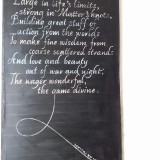 Large in life's limits,
strong in Matter's knots,
Building great stuff of
action from the worlds
To make fine wisdom from
coarse scattered strands
And love and beauty
out of war and night,
The wager wonderful,
the game divine.